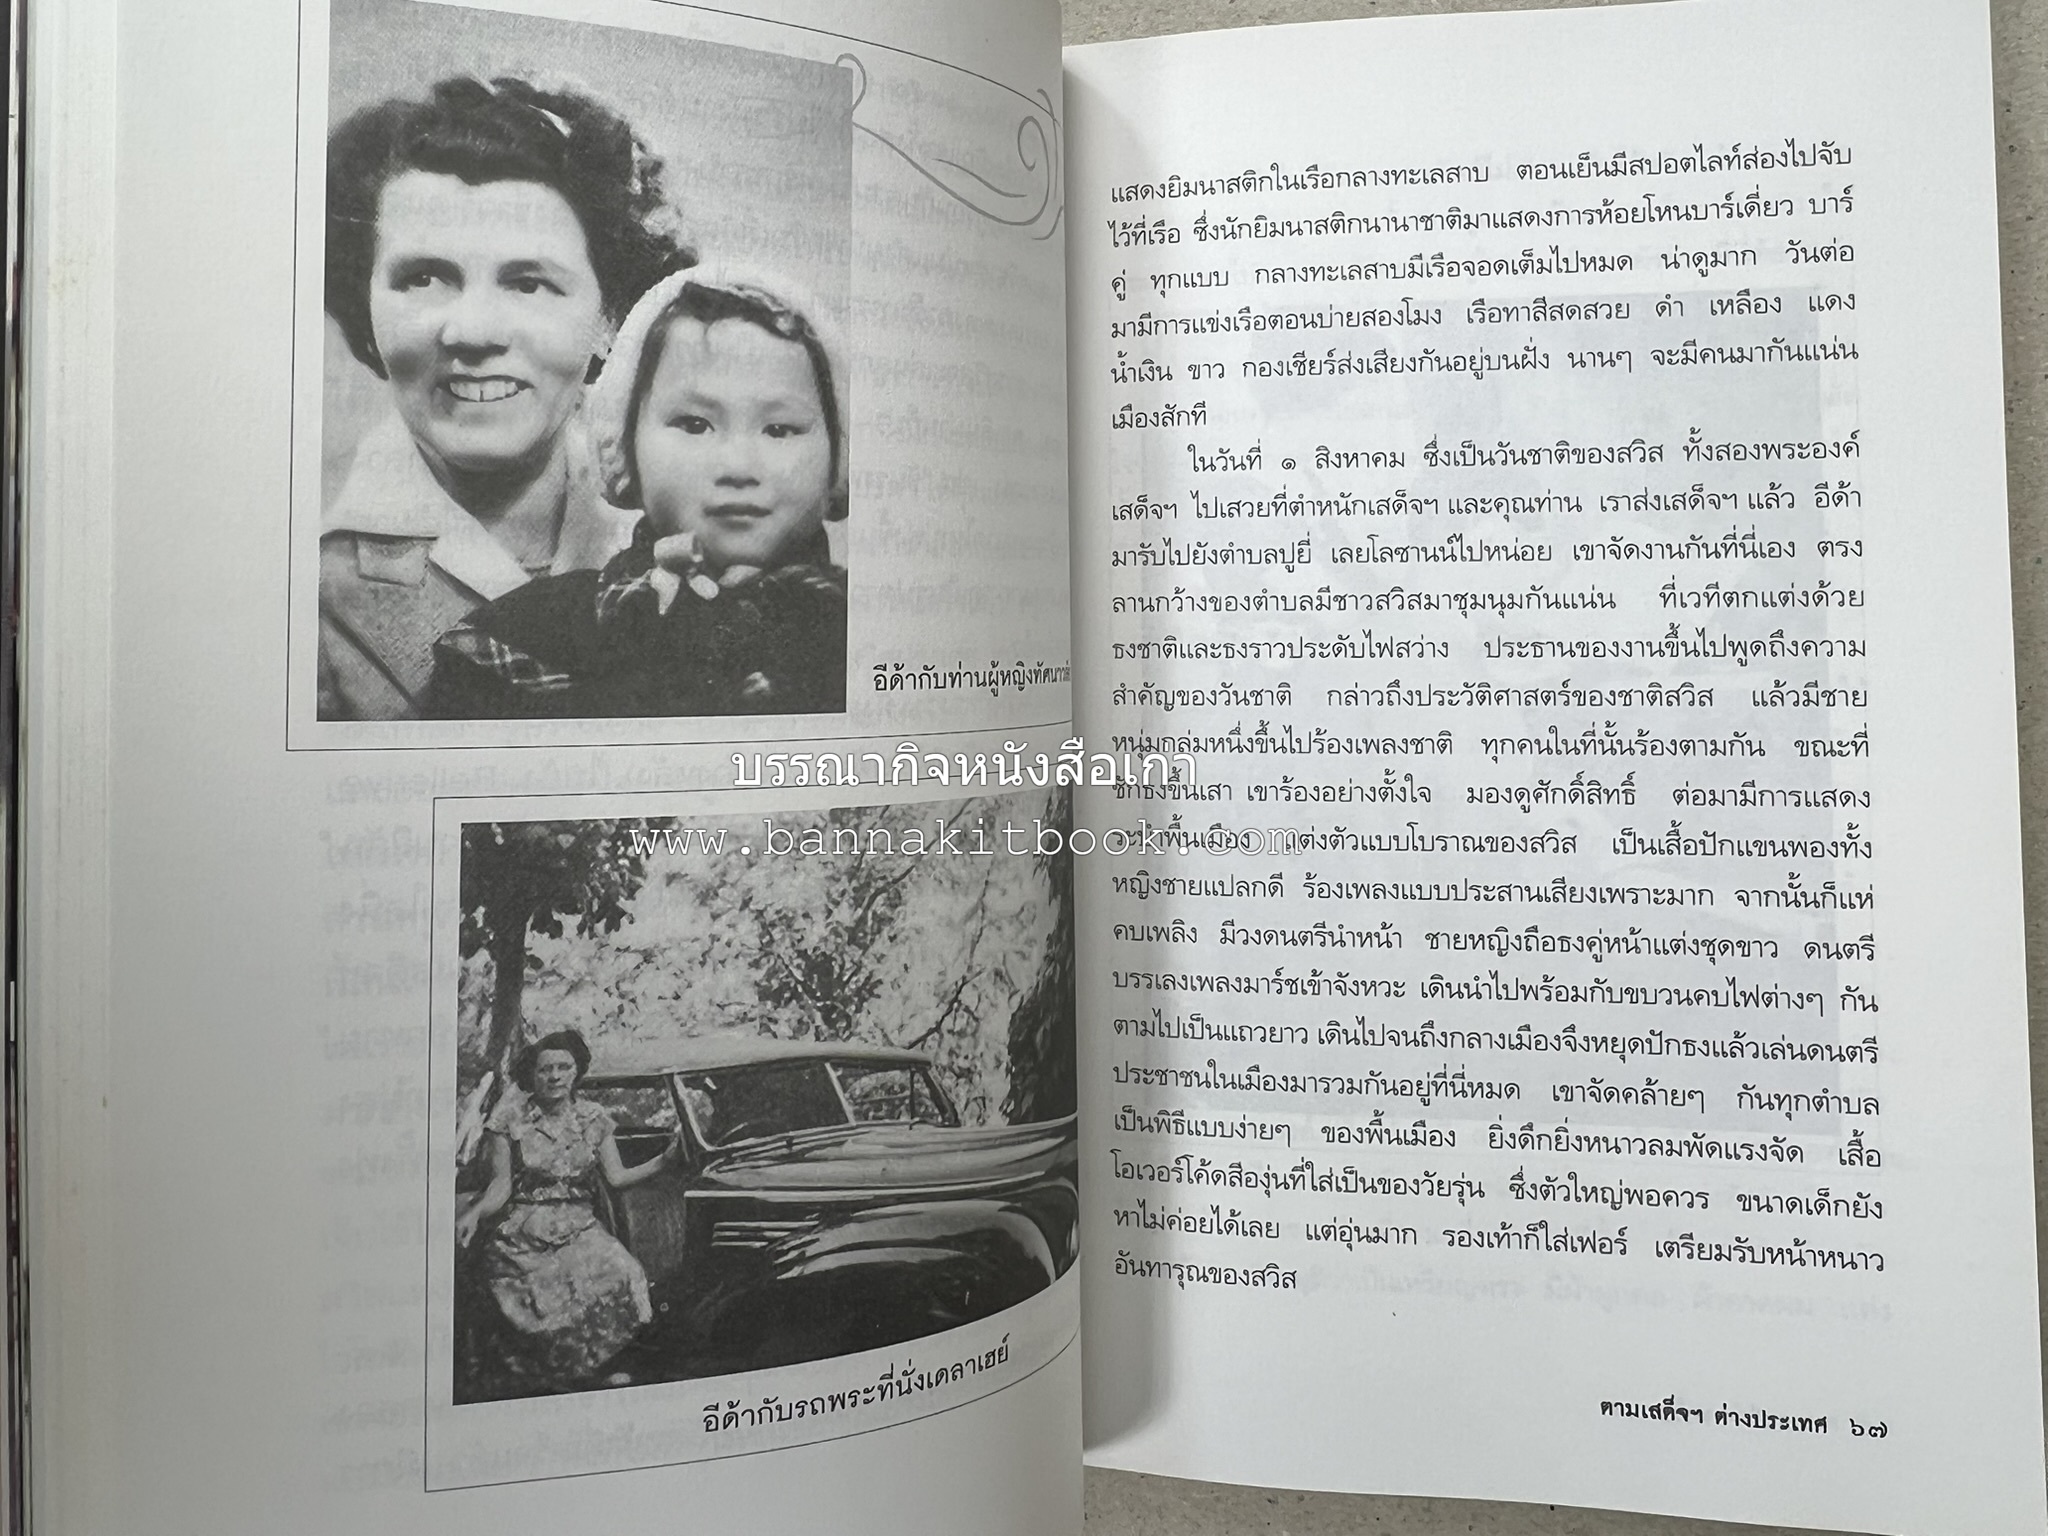 อีด้ากับท่านผู้หญิงทัศนาวลัย
อีด้ากับรถพระที่นั่งเดลาเฮย์
บรรณากิจหนังสือเก่า
www.bannakitbook.com
แสดงยิมนาสติกในเรือกลางทะเลสาบ ตอนเย็นมีสปอตไลท์ส่องไปจับ
ไว้ที่เรือ ซึ่งนักยิมนาสติกนานาชาติมาแสดงการห้อยโหนบาร์เดี่ยว บาร์
คู่ ทุกแบบ กลางทะเลสาบมีเรือจอดเต็มไปหมด น่าดูมาก วันต่อ
มามีการแข่งเรือตอนบ่ายสองโมง เรือทาสีสดสวย ดำ เหลือง แดง
น้ำเงิน ขาว กองเชียร์ส่งเสียงกันอยู่บนฝั่ง นานๆ จะมีคนมากันแน่น
เมืองสักที
ในวันที่ ๑ สิงหาคม ซึ่งเป็นวันชาติของสวิส ทั้งสองพระองค์
เสด็จฯ ไปเสวยที่ตำหนักเสด็จฯ และคุณท่าน เราส่งเสด็จฯ แล้ว อีด้า
มารับไปยังตำบลปูยี่ เลยโลซานน์ไปหน่อย เขาจัดงานกันที่นี่เอง ตรง
ลานกว้างของตำบลมีชาวสวิสมาชุมนุมกันแน่น ที่เวทีตกแต่งด้วย
ธงชาติและธงราวประดับไฟสว่าง ประธานของงานขึ้นไปพูดถึงความ
สำคัญของวันชาติ กล่าวถึงประวัติศาสตร์ของชาติสวิส แล้วมีชาย
หนุ่มกลุ่มหนึ่งขึ้นไปร้องเพลงชาติ ทุกคนในที่นั้นร้องตามกัน ขณะที่
ชักธงขึ้นเสา เขาร้องอย่างตั้งใจ มองดูศักดิ์สิทธิ์ ต่อมามีการแสดง
ระบำพื้นเมือง แต่งตัวแบบโบราณของสวิส เป็นเสื้อปักแขนพองทั้ง
หญิงชายแปลกดี ร้องเพลงแบบประสานเสียงเพราะมาก จากนั้นก็แห่
คบเพลิง มีวงดนตรีนำหน้า ชายหญิงถือธงคู่หน้าแต่งชุดขาว ดนตรี
บรรเลงเพลงมาร์ชเข้าจังหวะ เดินนำไปพร้อมกับขบวนคบไฟต่างๆ กัน
ตามไปเป็นแถวยาว เดินไปจนถึงกลางเมืองจึงหยุดปักธงแล้วเล่นดนตรี
ประชาชนในเมืองมารวมกันอยู่ที่นี่หมด เขาจัดคล้ายๆ กันทุกตำบล
เป็นพิธีแบบง่ายๆ ของพื้นเมือง ยิ่งดึกยิ่งหนาวลมพัดแรงจัด เสื้อ
โอเวอร์โค้ดสีองุ่นที่ใส่เป็นของวัยรุ่น ซึ่งตัวใหญ่พอควร ขนาดเด็กยัง
หาไม่ค่อยได้เลย แต่อุ่นมาก รองเท้าก็ใส่เฟอร์ เตรียมรับหน้าหนาว
อันทารุณของสวิส
ตามเสด็จฯ ต่างประเทศ ๖๗